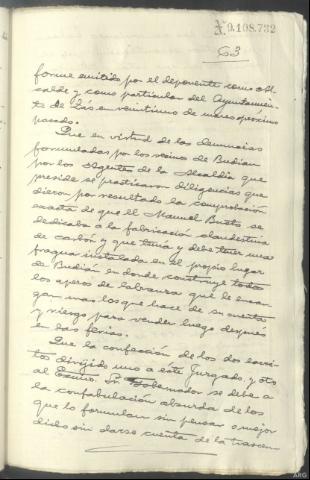 N. 9.108.732
63
forme emitido por el deponente como Al-
calde y como particular del Ayuntamien-
to de Lás en veintiuno de marzo próximo
pasado.
Que en virtud de las denuncias
formuladas por los vecinos de Budián
por los Agentes de la Alcaldía que
preside se practicaron diligencias que
dieron por resultado la comprobación
exacta de que el Manuel Busto se
dedicaba a la fabricación clandestina
de carbón y que tenía y debe tener una
fragua instalada en el propio lugar
de Budián en donde construye todos
los aperos de labranza que le encar-
gan mas los que hace de su cuenta
y riesgo para vender luego después
en las ferias.
Que la confección de los dos escri-
tos dirigido uno a este Juzgado, y otro
al Excmo. Sr. Gobernador se debe a
la confabulación absurda de los
que lo formulan sin pensar o mejor
dicho sin darse cuenta de la trascen-
ARG